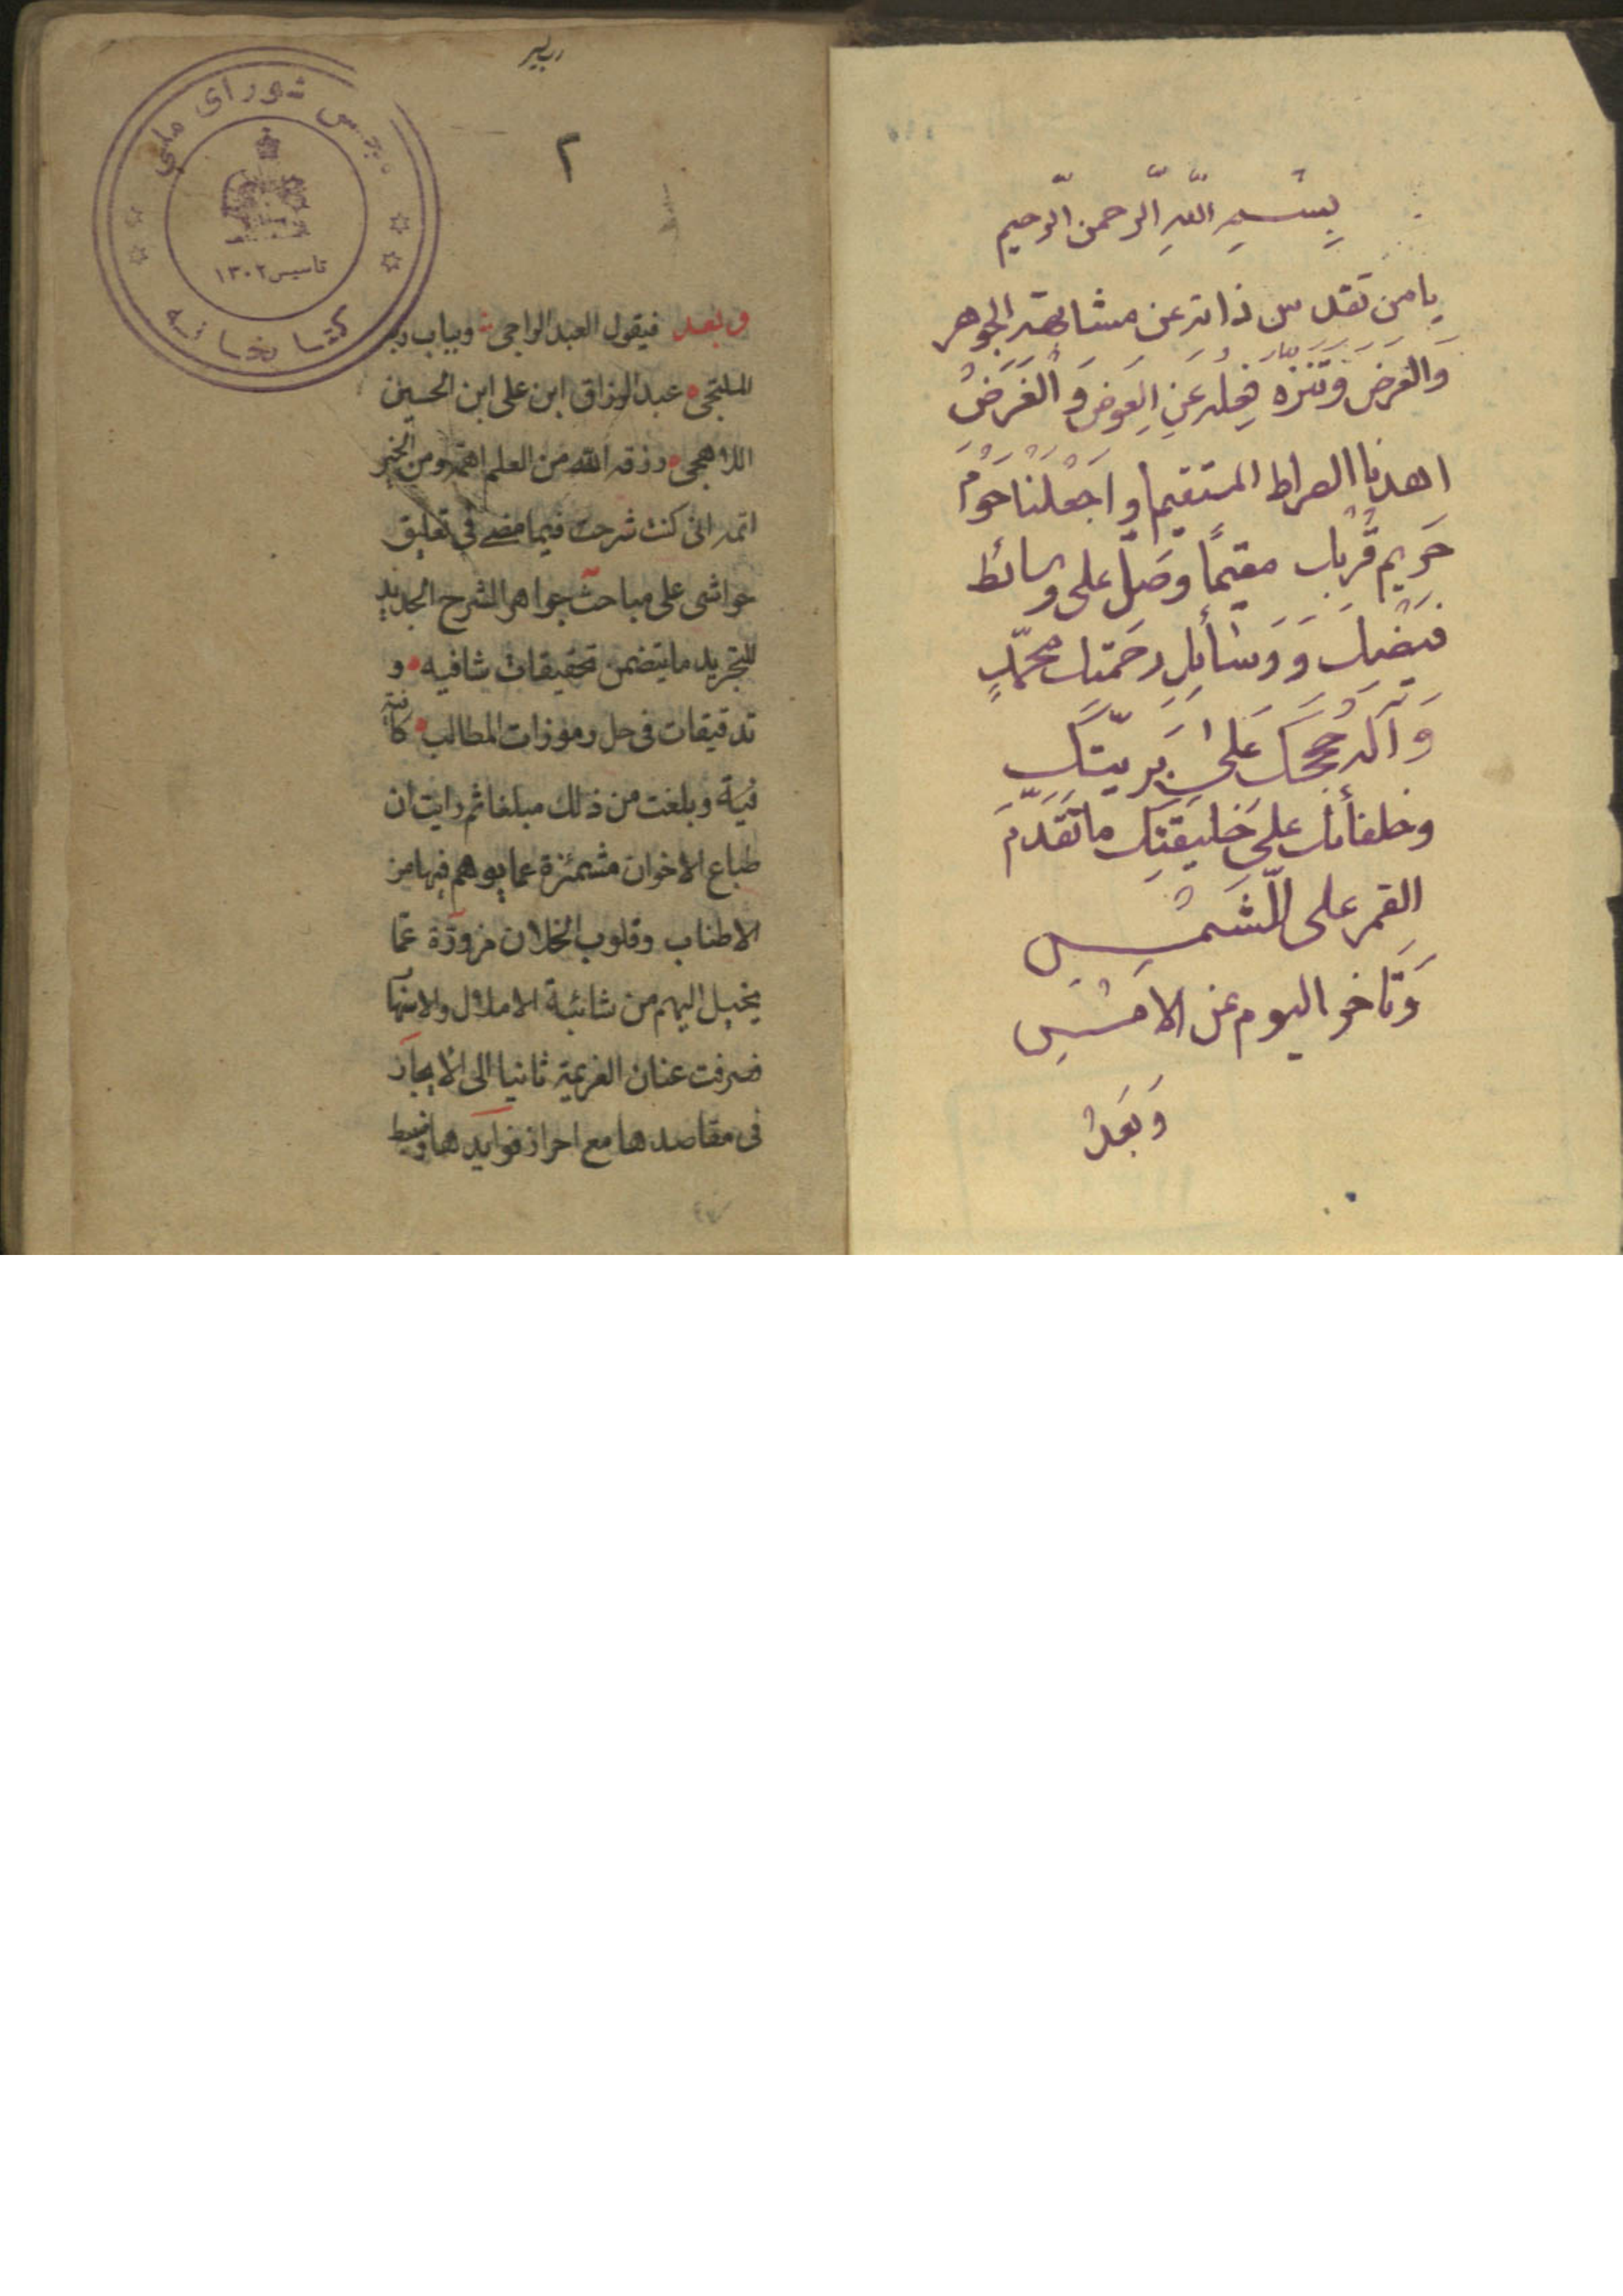 بِسْمِ اللّهِ الرّحمن الرّحيم
يا من تقدس ذاته عن مشابهة الجوهر
وَالعَرض وَتَنَزه فِعله عَنِ العِوض وَ الغَرَضْ
اهدنا الصراط المستقيم وَ اجْعَلْنا حَوْمَ
حَريم قُربك مقيمًا وَصَلّ على وسائط
فَيضك وَ وَسٰائلِ رحمَتك محمّدٍ
وَ آله حُجَجكَ عَلىٰ بَريّتكِ
وخلفائك على خَليقَتِك ما تَقَدّمَ
القمر على الشّمسِ
وَتاخر اليوم عن الامْسِ
وَبَعدْ
٢
وبعد فيقول العبد الراجى وبياب ربه
الملتجى عبد الرزاق ابن على ابن الحسين
اللاهجى رزقه الله من العلم اهمه ومن الخير
اتمه انى كنت شرحت فيما مضى فى تعليق
حواشى على مباحث جواهر الشرح الجديد
للتجريد ما يتضمن تحقيقات شافيه و
تدقيقات فى حل رموزات المطالب كافية
فية وبلغت من ذلك مبلغا ثم رايت ان
طباع الاخوان مشمئزة عما يوهم فيها من
الاطناب وقلوب الخلان مزورّة عمّا
يخيل اليهم من شائبة الاملال والاسهاب
فصرفت عنان العزيمة ثانيا الى الايجاز
فى مقاصدها مع احراز فوايدها وضبط
مجلس شوراى ملى
تاسيس ١٣٠٢
كتابخانه